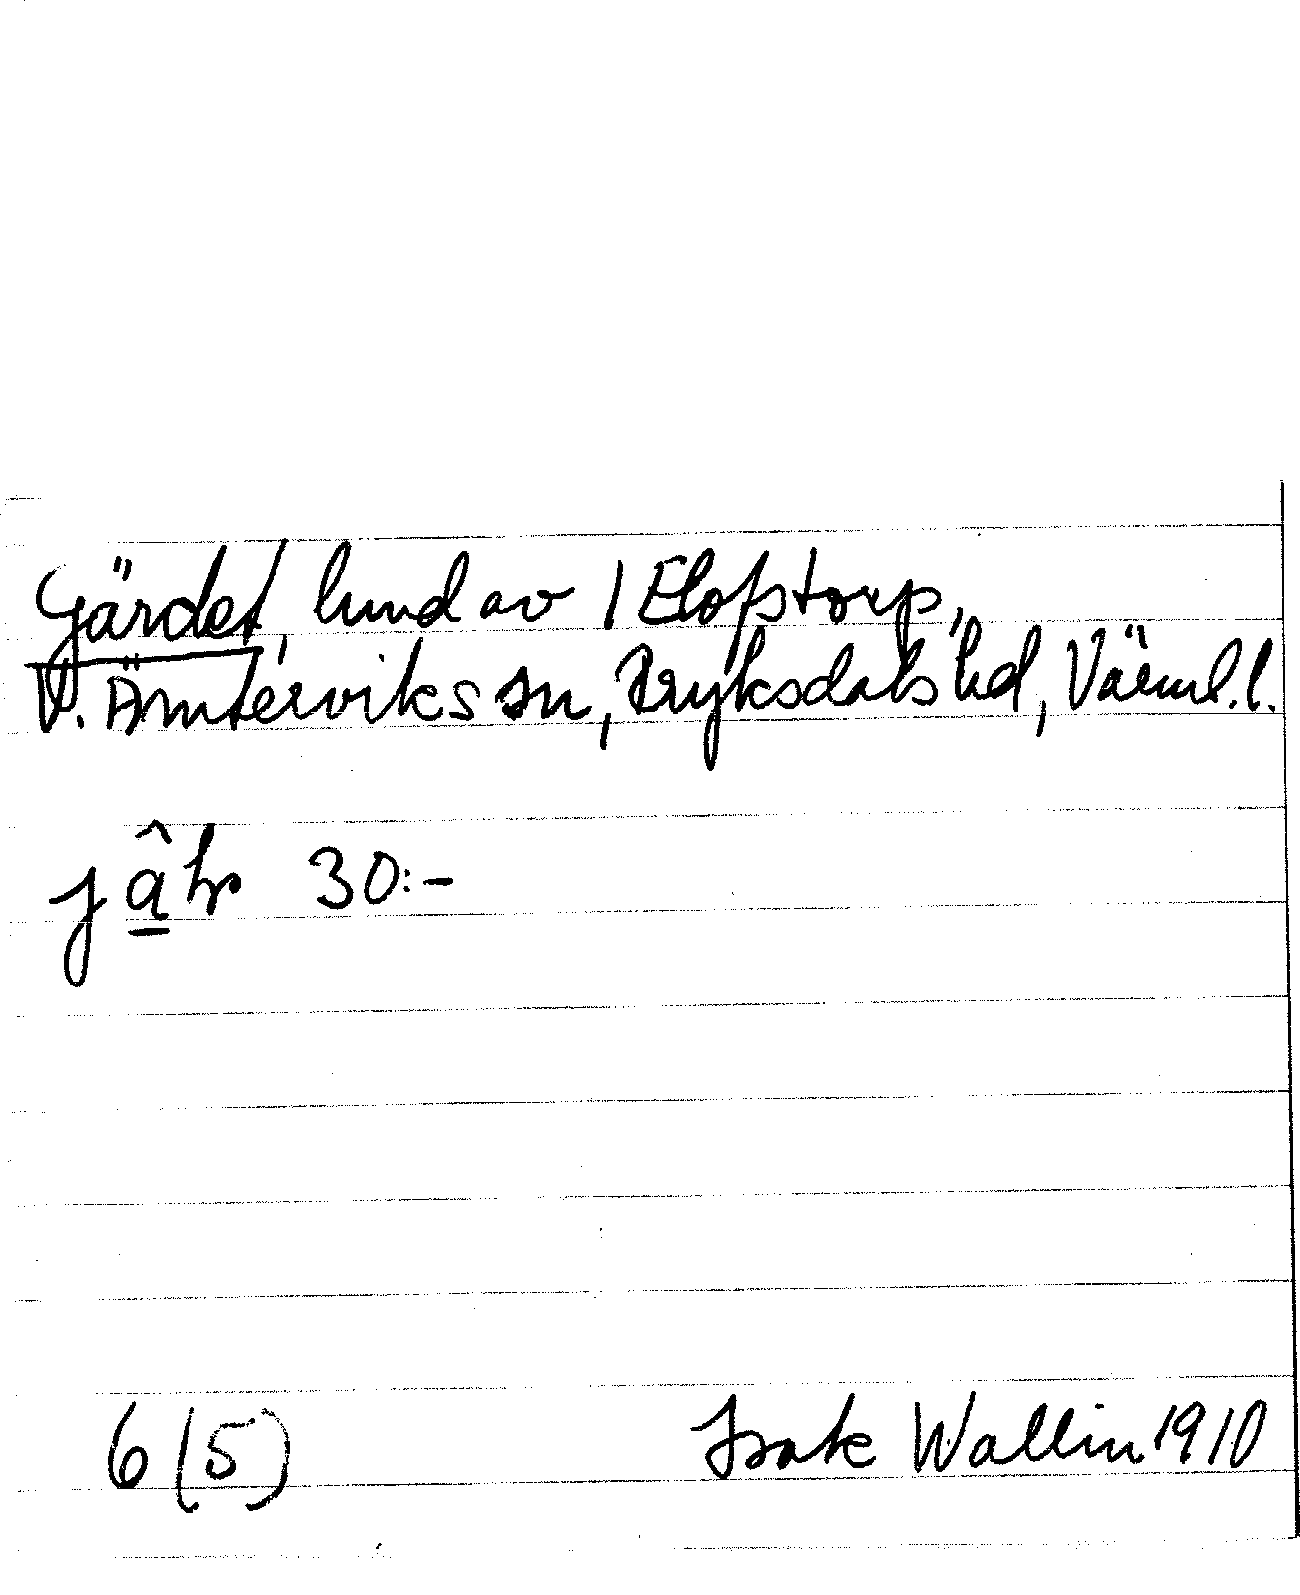 Gärdet, hmd av 1 Elofstorp,
V. Ämterviks sn, Fryksdals hd, Värml.l.
30:-
6 (5) Isak Wallin 1910